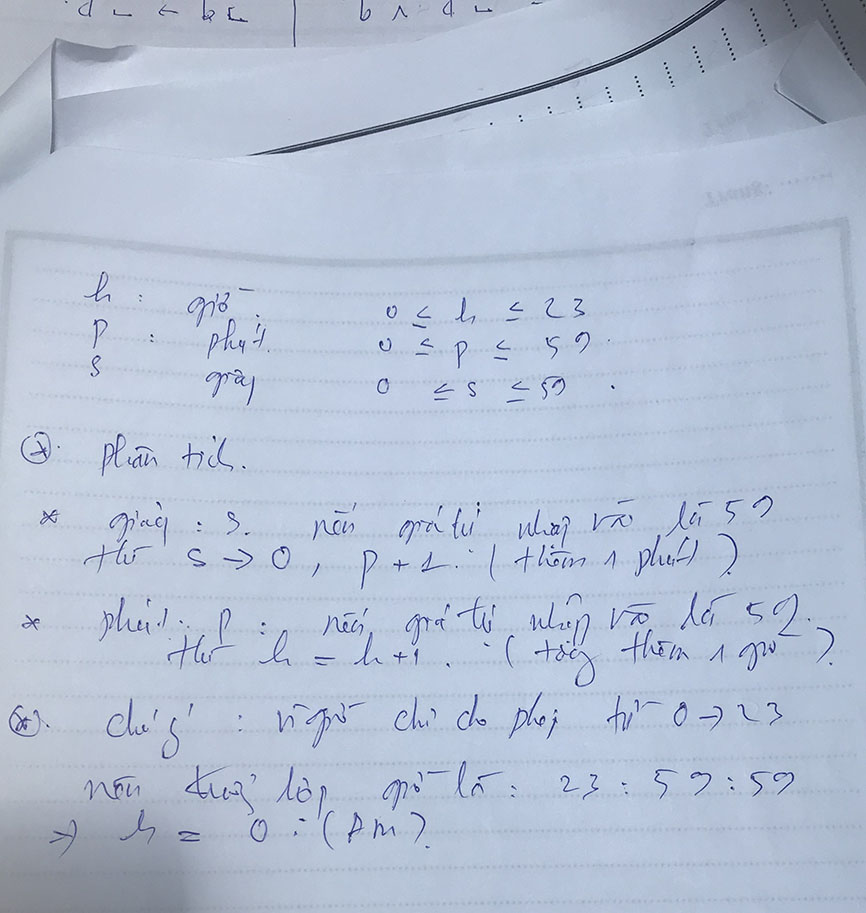 h : giờ. 0 ≤ h ≤ 23
p : phút. 0 ≤ p ≤ 59.
s giây 0 ≤ s ≤ 59.
(*). phân tích.
* giây : s. nếu giá trị nhập vào là 59
thì s → 0, p + 1 : ( thêm 1 phút )
* phút. p : nếu giá trị nhập vào là 59.
thì h = h+1. : ( tăng thêm 1 giờ )
(*). chú ý : vì giờ chỉ cho phép từ 0 → 23
nên giờ là : 23 : 59 : 59
→ h = 0 : (AM).